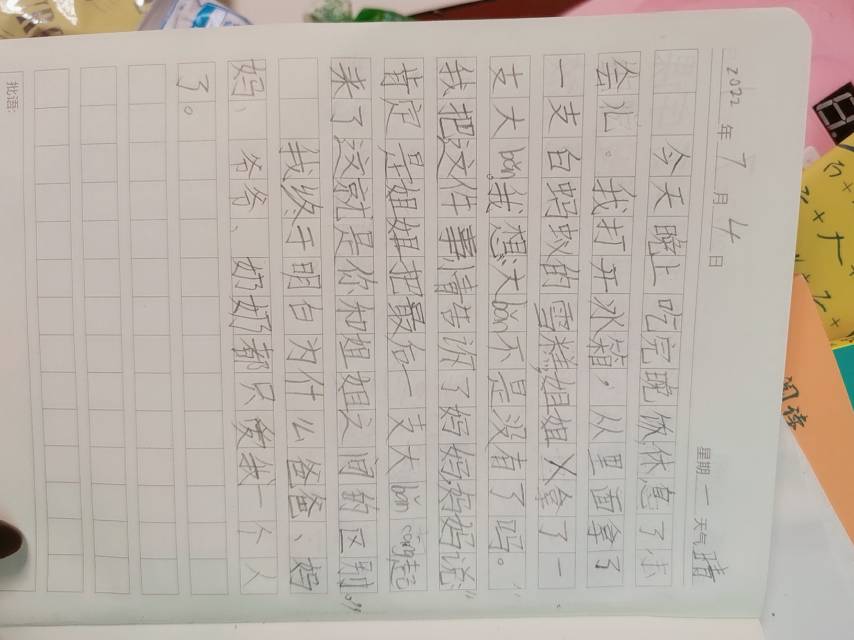 2022年7月4日 星期一 天气晴
今天晚上吃完晚饭休息了小
会儿。我打开冰箱,从里面拿了
一支白蚂蚁的雪糕,姐姐又拿了一
支大bèn。我想:大bèn不是没有了吗。
我把这件事情告诉了妈妈,妈妈说:“
肯定是姐姐把最后一支大bèn cáng起
来了这就是你和姐姐之间的区别。”
我终于明白为什么爸爸、妈
妈、爷爷、奶奶都只发我一个人
了。
批语:
阅读